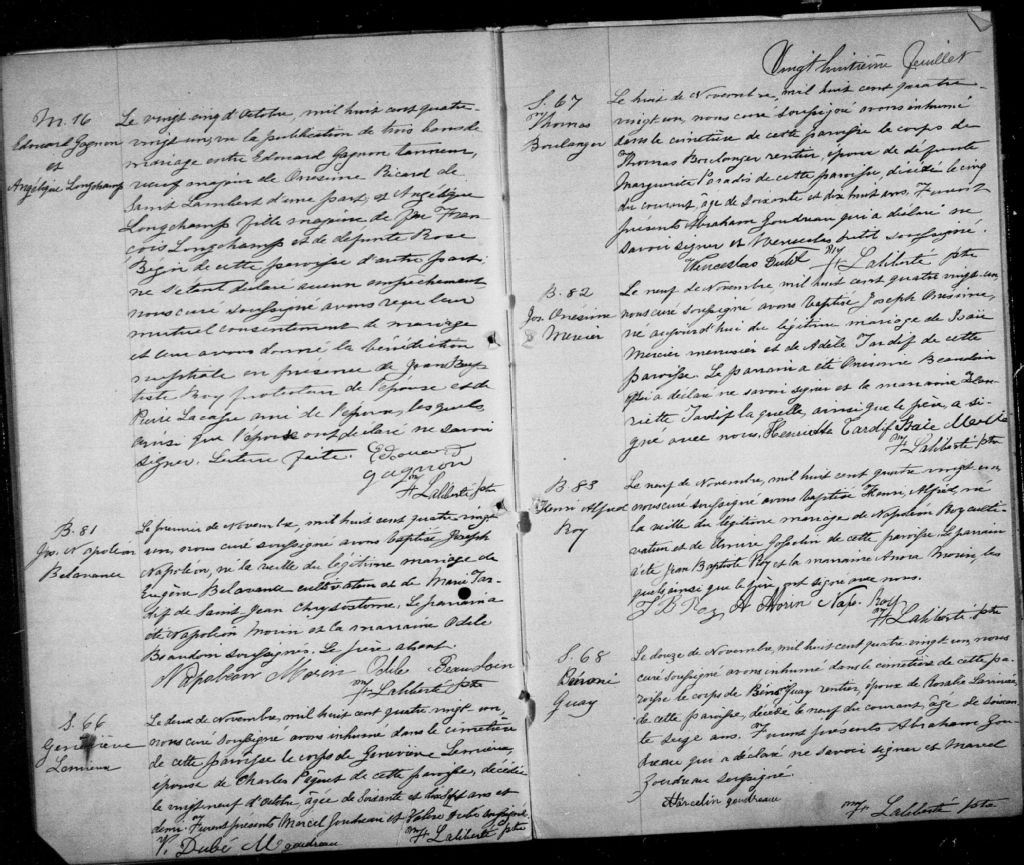 M. 16
Edouard Gagnon
et
Angélique Longchamp
Le vingt cinq d'Octobre, mil huit cent quatre-
vingt un, vu la publication de trois bans de
mariage entre Edouard Gagnon tanneur,
veuf majeur de Onesime Picard de
Saint Lambert d'une part, et Angélique
Longchamp fille majeure de feu Fran
cois Longchamp et de defunte Rose
Bégin de cette paroisse d'autre part;
ne s'étant déclaré aucun empêchement
nous curé soussigné avons reçu leur
mutuel consentement de mariage
et leur avons donné la bénédiction
nuptiale en présence de Jean Bap
tiste Roy de l'épouse et de
Pierre Lacasse ami de l'époux, lesquels
ainsi que l'épouse ont déclaré ne savoir
signer. Lecture faite. Edouard
gagnon
F. Laliberté ptre
B. 81
Jos. Napoléon
Belavance
Le premier de Novembre, mil huit cent quatre vingt
un, nous curé soussigné avons baptisé Joseph
Napoléon, né la veille du légitime mariage de
Eugène Belavance cultivateur et de Marie Tar-
dif de Saint Jean Chrysostome. Le parrain a
été Napoléon Morin et la marraine Odile
Beaudoin soussignés. Le père absent.
Napoléon Morin Odile Beaudoin
F. Laliberté ptre
S. 66
Geneviève
Lemieux
Le deux de Novembre, mil huit cent quatre vingt un,
nous curé soussigné avons inhumé dans le cimetière
de cette paroisse le corps de Geneviève Lemieux,
épouse de Charles Paquet de cette paroisse, décédée
le vingt neuf d'Octobre, âgée de soixante et dix sept ans et
demi. Furent présents Marcel Goudreau et Valère Dubé soussignés.
V. Dubé M. goudreau F. Laliberté ptre
Vingt huitième feuillet
S. 67
Thomas
Boulanger
Le huit de Novembre, mil huit cent quatre
vingt un, nous curé soussigné avons inhumé
dans le cimetière de cette paroisse le corps de
Thomas Boulanger rentier, époux de défunte
Marguerite Paradis de cette paroisse, décédé le cinq
du courant, âgé de soixante et dix huit ans. Furent
présents Abraham Goudreau qui a déclaré ne
savoir signer et Venceslas Dubé soussigné.
Venceslas Dubé F. Laliberté ptre
B. 82
Jos. Onesime
Mercier
Le neuf de Novembre, mil huit cent quatre vingt un
nous curé soussigné avons baptisé Joseph Onesime,
né aujourd'hui du légitime mariage de Isaie
Mercier menuisier et de Adèle Tardif de cette
paroisse. Le parrain a été Onésime Beaudoin
qui a déclaré ne savoir signer et la marraine Hen-
riette Tardif laquelle, ainsi que le père, a si-
gné avec nous. Henriette Tardif Isaïe Mercier
F. Laliberté ptre
B. 83
Henri Alfred
Roy
Le neuf de Novembre, mil huit cent quatre vingt un
nous curé soussigné avons baptisé Henri Alfred, né
la veille du légitime mariage de Napoléon Roy culti-
vateur et de Elmire Gosselin de cette paroisse. Le parrain
a été Jean Baptiste Roy et la marraine Anna Morin, les
quels ainsi que le père, ont signé avec nous.
J B Roy A Morin Nap. Roy
F. Laliberté ptre
S. 68
Béroni
Guay
Le douze de Novembre, mil huit cent quatre vingt un, nous
curé soussigné avons inhumé dans le cimetière de cette pa-
roisse le corps de Béroni Guay rentier, époux de Rosalie Lemieux,
de cette paroisse, décédé le neuf du courant, âgé de soixan-
te seize ans. Furent présents Abraham Gou-
dreau qui a déclaré ne savoir signer et Marcel
Goudreau soussigné.
Marcelin goudreau
F. Laliberté ptre